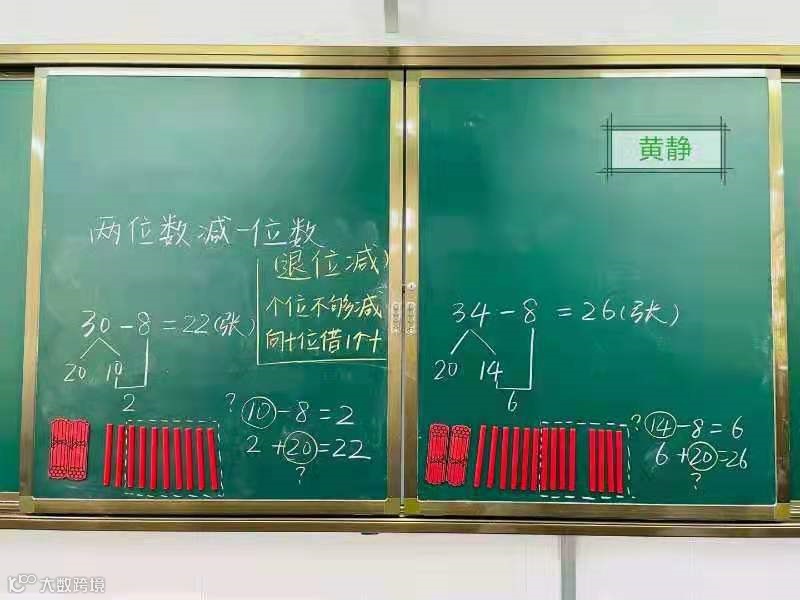 两位数减一位数
(退位减)
个位不够减
向十位借1个十
30-8=22(张)
20 10
2
? 10-8=2
2+20=22
?
黄静
34-8=26(张)
20 14
6
? 14-8=6
6+20=26
?
大数跨境